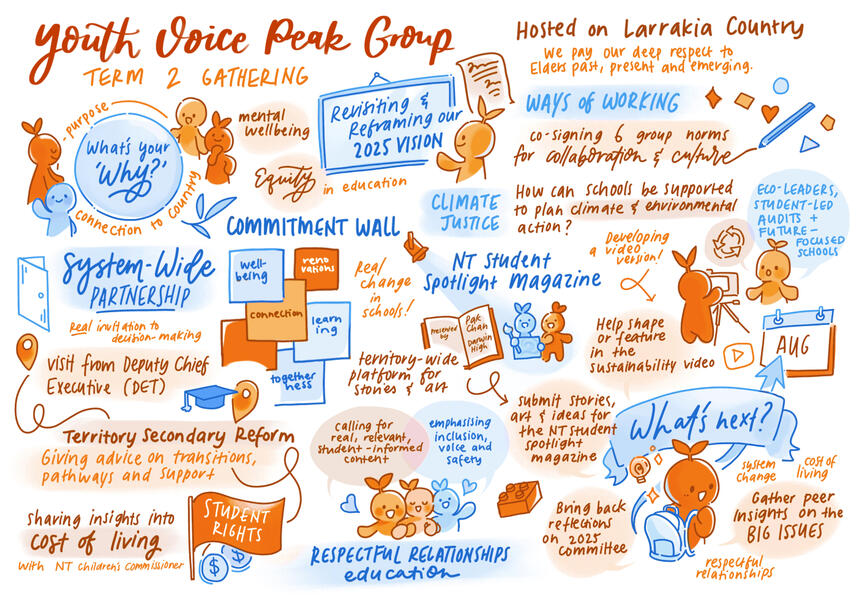 Youth Voice Peak Group
TERM 2 GATHERING
Hosted on Larrakia Country
We pay our deep respect to
Elders past, present and emerging.
purpose
What's your
'Why?'
connection to Country
mental
wellbeing
Equity
in education
Revisiting &
Reframing our
2025 VISION
WAYS OF WORKING
co-signing 6 group norms
for collaboration & culture
CLIMATE
JUSTICE
How can schools be supported
to plan climate & environmental
action?
ECO-LEADERS,
STUDENT-LED
AUDITS +
FUTURE-
FOCUSED
SCHOOLS
Developing
a video
version!
Help shape
or feature
in the
sustainability video
AUG
COMMITMENT WALL
well-
being
reno
vations
connection
learn
ing
together
ness
Real
change
in
schools!
System-Wide
PARTNERSHIP
Real invitation to
decision-making
visit from Deputy Chief
Executive (DET)
NT Student
Spotlight Magazine
presented
by
Pak
Chan
Darwin
High
territory-wide
platform for
stories & art
submit stories,
art & ideas for
the NT student
spotlight
magazine
Territory Secondary Reform
Giving advice on transitions,
pathways and support
sharing insights into
cost of living
With NT Children's Commissioner
STUDENT
RIGHTS
$
$
calling for
real, relevant,
student-informed
content
emphasising
inclusion,
voice and
safety
RESPECTFUL RELATIONSHIPS
education
What's next?
Bring back
reflections
on 2025
committee
system
change
cost of
living
Gather peer
insights on the
BIG ISSUES
respectful
relationships